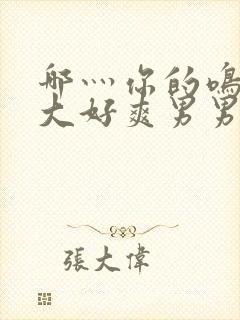 哪灬你的鳴
大好爽男男
張大偉